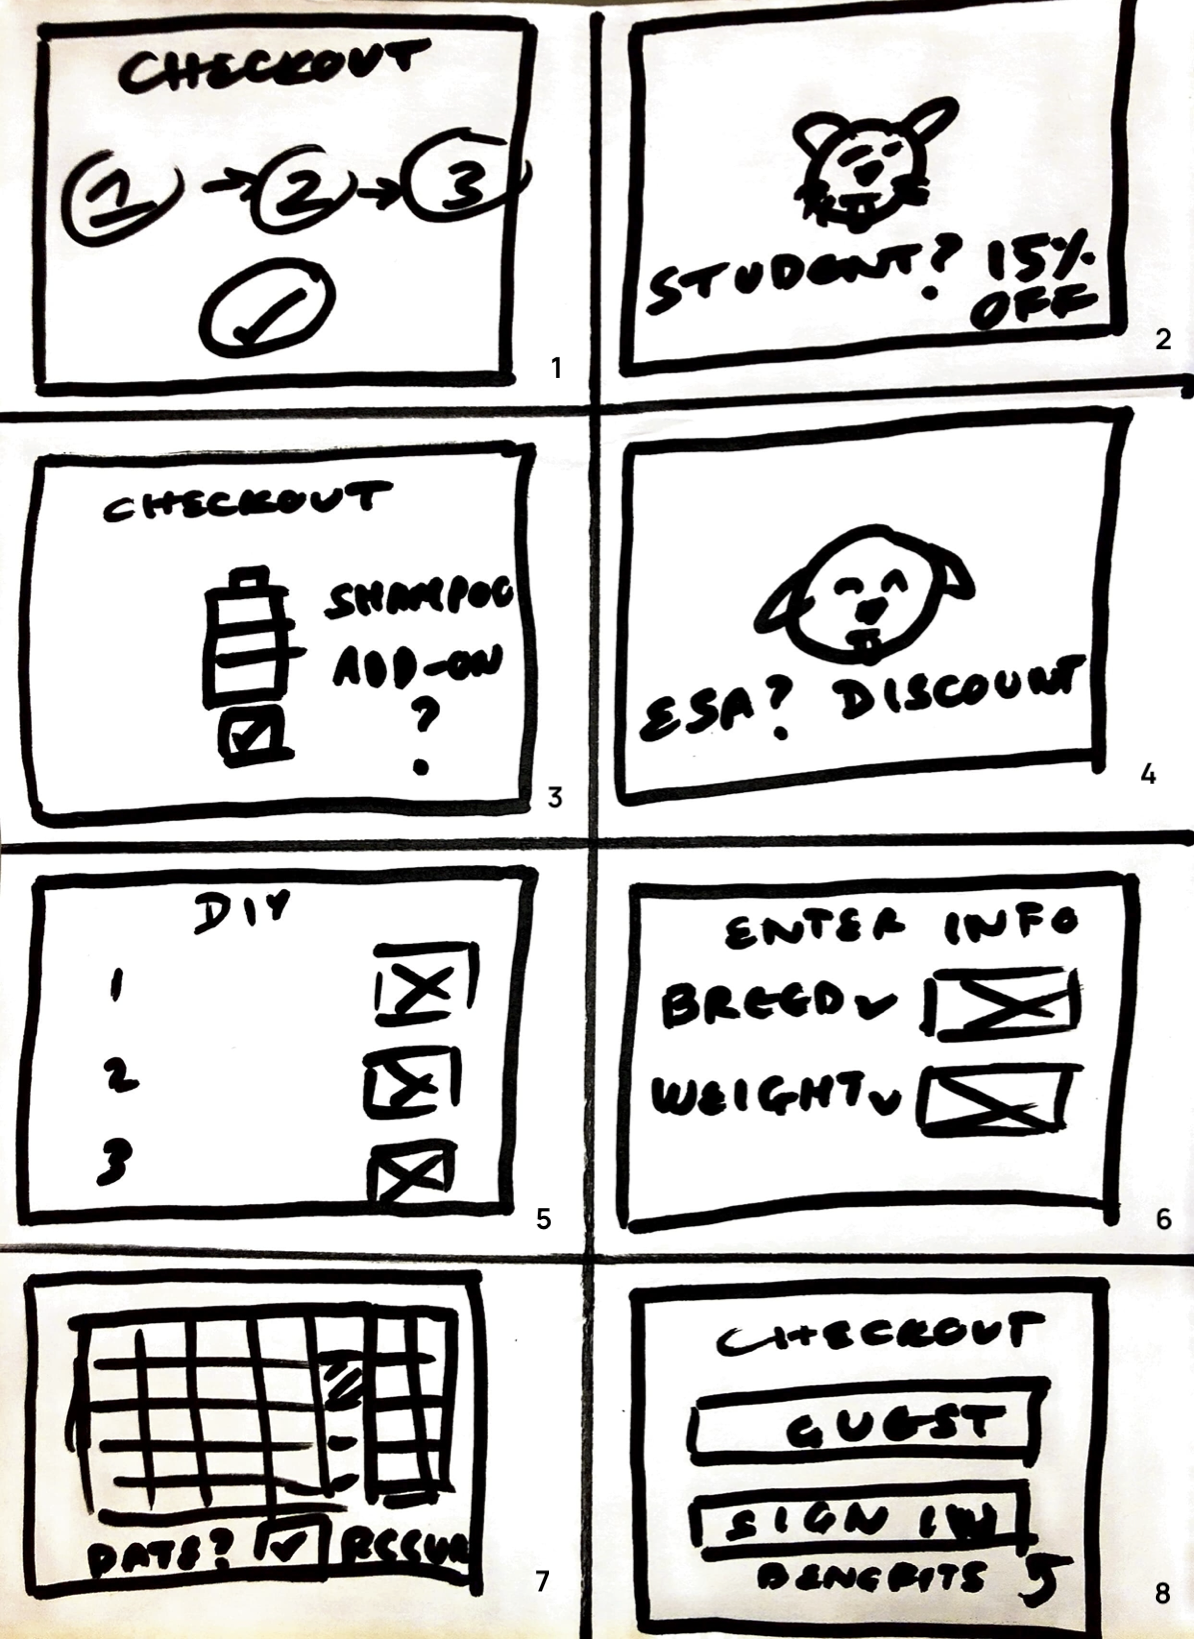 CHECKOUT
1 → 2 → 3
1
STUDENT? 15%
OFF
2
CHECKOUT
SHAMPOO
ADD-ON
?
3
ESA? DISCOUNT
4
DIY
1
2
3
5
ENTER INFO
BREED
WEIGHT
6
DATE? RECUR
7
CHECKOUT
GUEST
SIGN IN
BENEFITS
8